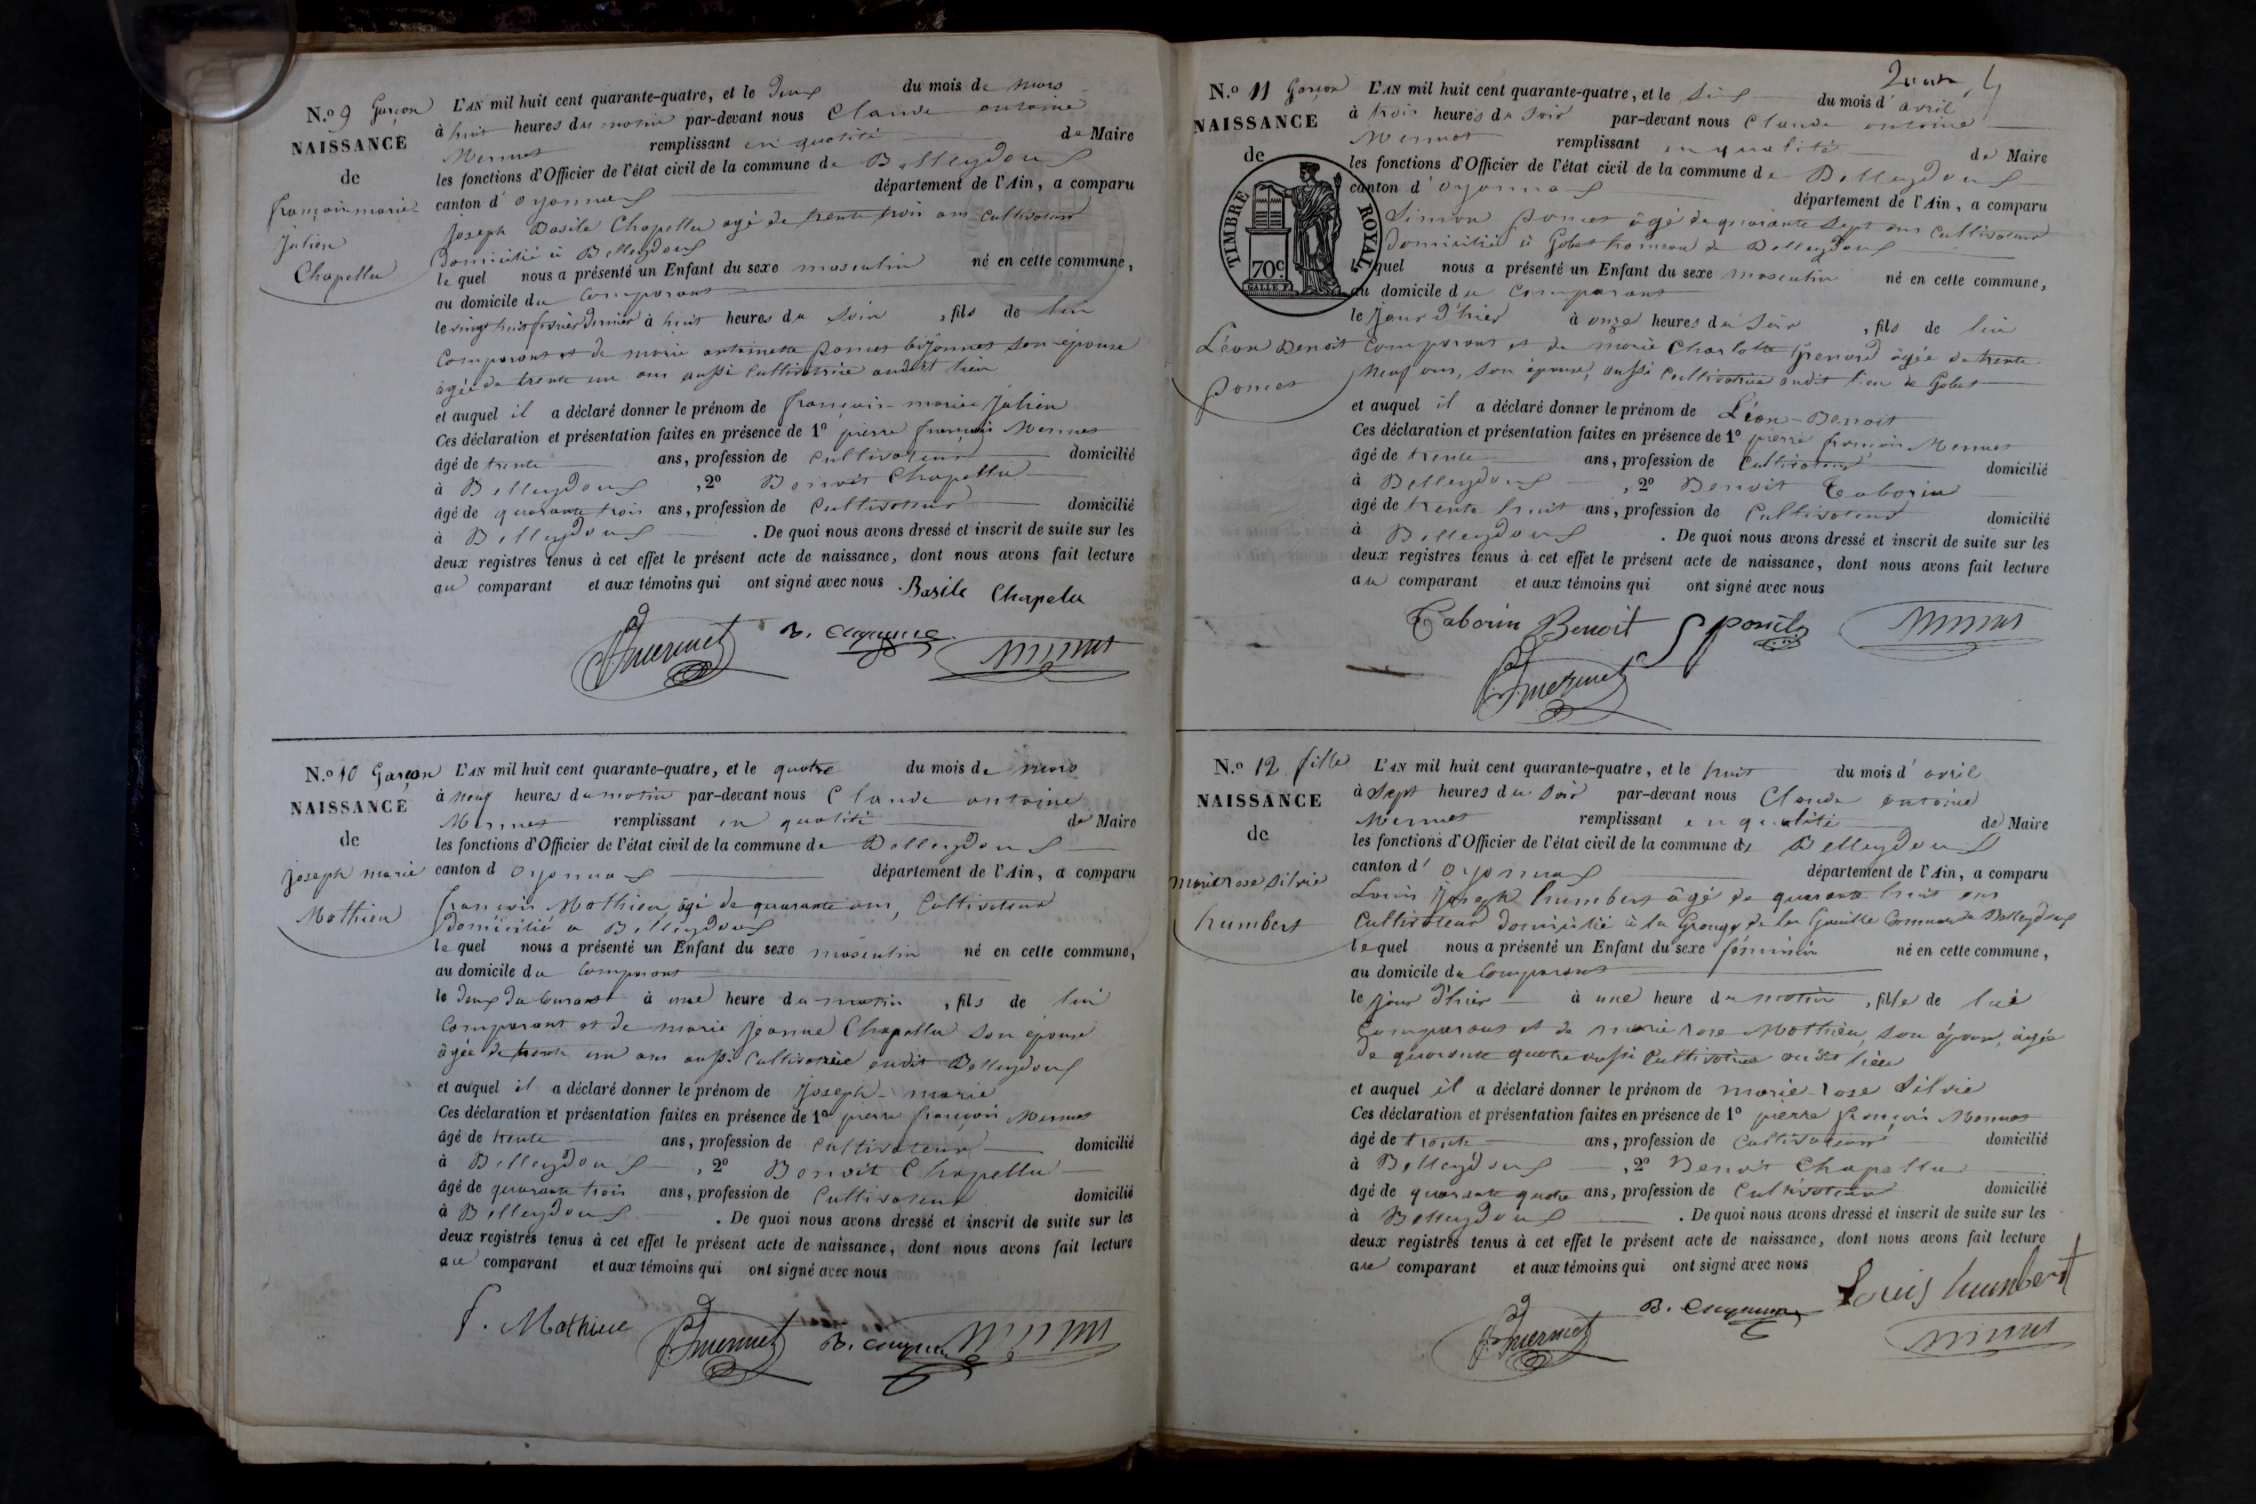 N.º 9 Garçon
NAISSANCE
de
françois marie
julien
Chapellu
L'AN mil huit cent quarante-quatre, et le deux du mois de mars
à huit heures du matin par-devant nous Claude antoine
Mermet remplissant en qualité de Maire
les fonctions d'Officier de l'état civil de la commune de Belleydoux
canton d'oyonnax département de l'Ain, a comparu
joseph Basile Chapellu agé de trente trois ans Cultivateur
domicilié à Belleydoux
le quel nous a présenté un Enfant du sexe masculin né en cette commune,
au domicile du Comparant
le vingt huit février dernier à huit heures du soir, fils de lui
Comparant et de marie antoinette poncet son épouse
âgée de trente un ans aussi Cultivatrice audit lieu
et auquel il a déclaré donner le prénom de françois-marie julien
Ces déclaration et présentation faites en présence de 1º pierre françois Mermet
âgé de trente ans, profession de Cultivateur domicilié
à Belleydoux, 2º Benoit Chapellu
âgé de quarante trois ans, profession de Cultivateur domicilié
à Belleydoux. De quoi nous avons dressé et inscrit de suite sur les
deux registres tenus à cet effet le présent acte de naissance, dont nous avons fait lecture
au comparant et aux témoins qui ont signé avec nous Basile Chapelu
mermet Mermet
N.º 10 Garçon
NAISSANCE
de
joseph marie
Mathieu
L'AN mil huit cent quarante-quatre, et le quatre du mois de mars
à neuf heures du matin par-devant nous Claude antoine
Mermet remplissant en qualité de Maire
les fonctions d'Officier de l'état civil de la commune de Belleydoux
canton d oyonnax département de l'Ain, a comparu
françois Mathieu âgé de quarante ans, Cultivateur
domicilié a Belleydoux
le quel nous a présenté un Enfant du sexe masculin né en cette commune,
au domicile du Comparant
le deux du Courant à une heure du matin, fils de lui
Comparant et de marie jeanne Chapellu son épouse
âgée de trente un ans aussi Cultivatrice audit Belleydoux
et auquel il a déclaré donner le prénom de Joseph-marie
Ces déclaration et présentation faites en présence de 1º pierre françois Mermet
âgé de trente ans, profession de Cultivateur domicilié
à Belleydoux, 2º Benoit Chapellu
âgé de quarante trois ans, profession de Cultivateur domicilié
à Belleydoux. De quoi nous avons dressé et inscrit de suite sur les
deux registres tenus à cet effet le présent acte de naissance, dont nous avons fait lecture
au comparant et aux témoins qui ont signé avec nous
f. Mathieu mermet Mermet
N.º 11 Garçon
NAISSANCE
de
TIMBRE ROYAL
70c
Léon Benoit
poncet
L'AN mil huit cent quarante-quatre, et le six du mois d'avril
à trois heures du soir par-devant nous Claude antoine
Mermet remplissant en qualité de Maire
les fonctions d'Officier de l'état civil de la commune de Belleydoux
canton d'oyonnax département de l'Ain, a comparu
Simon poncet âgé de quarante sept ans Cultivateur
domicilié à Gobet hameau de Belleydoux
quel nous a présenté un Enfant du sexe masculin né en cette commune,
au domicile du Comparant
le jour d'hier à onze heures du soir, fils de lui
Comparant et de marie Charlotte Grenard âgée de trente
neuf ans, son épouse, aussi Cultivatrice audit lieu de Gobet
et auquel il a déclaré donner le prénom de Léon-Benoit
Ces déclaration et présentation faites en présence de 1º pierre françois Mermet
âgé de trente ans, profession de Cultivateur domicilié
à Belleydoux, 2º Benoit Taborin
âgé de trente huit ans, profession de Cultivateur domicilié
à Belleydoux. De quoi nous avons dressé et inscrit de suite sur les
deux registres tenus à cet effet le présent acte de naissance, dont nous avons fait lecture
au comparant et aux témoins qui ont signé avec nous
Taborin Benoit S poncet Mermet
mermet
N.º 12 fille
NAISSANCE
de
marie rose silvie
humbert
L'AN mil huit cent quarante-quatre, et le huit du mois d'avril
à sept heures du soir par-devant nous Claude antoine
Mermet remplissant en qualité de Maire
les fonctions d'Officier de l'état civil de la commune de Belleydoux
canton d'oyonnax département de l'Ain, a comparu
Louis joseph humbert âgé de quarante huit ans
Cultivateur domicilié à la Grange de la Commune de Belleydoux
le quel nous a présenté un Enfant du sexe féminin né en cette commune,
au domicile du Comparant
le jour d'hier à une heure du matin, fille de lui
Comparant et de marie rose Mathieu, son épouse, âgée
de quarante quatre aussi Cultivatrice audit lieu
et auquel il a déclaré donner le prénom de marie rose silvie
Ces déclaration et présentation faites en présence de 1º pierre françois Mermet
âgé de trente ans, profession de Cultivateur domicilié
à Belleydoux, 2º Benoit Chapellu
âgé de quarante quatre ans, profession de Cultivateur domicilié
à Belleydoux. De quoi nous avons dressé et inscrit de suite sur les
deux registres tenus à cet effet le présent acte de naissance, dont nous avons fait lecture
au comparant et aux témoins qui ont signé avec nous
Louis humbert
mermet Mermet